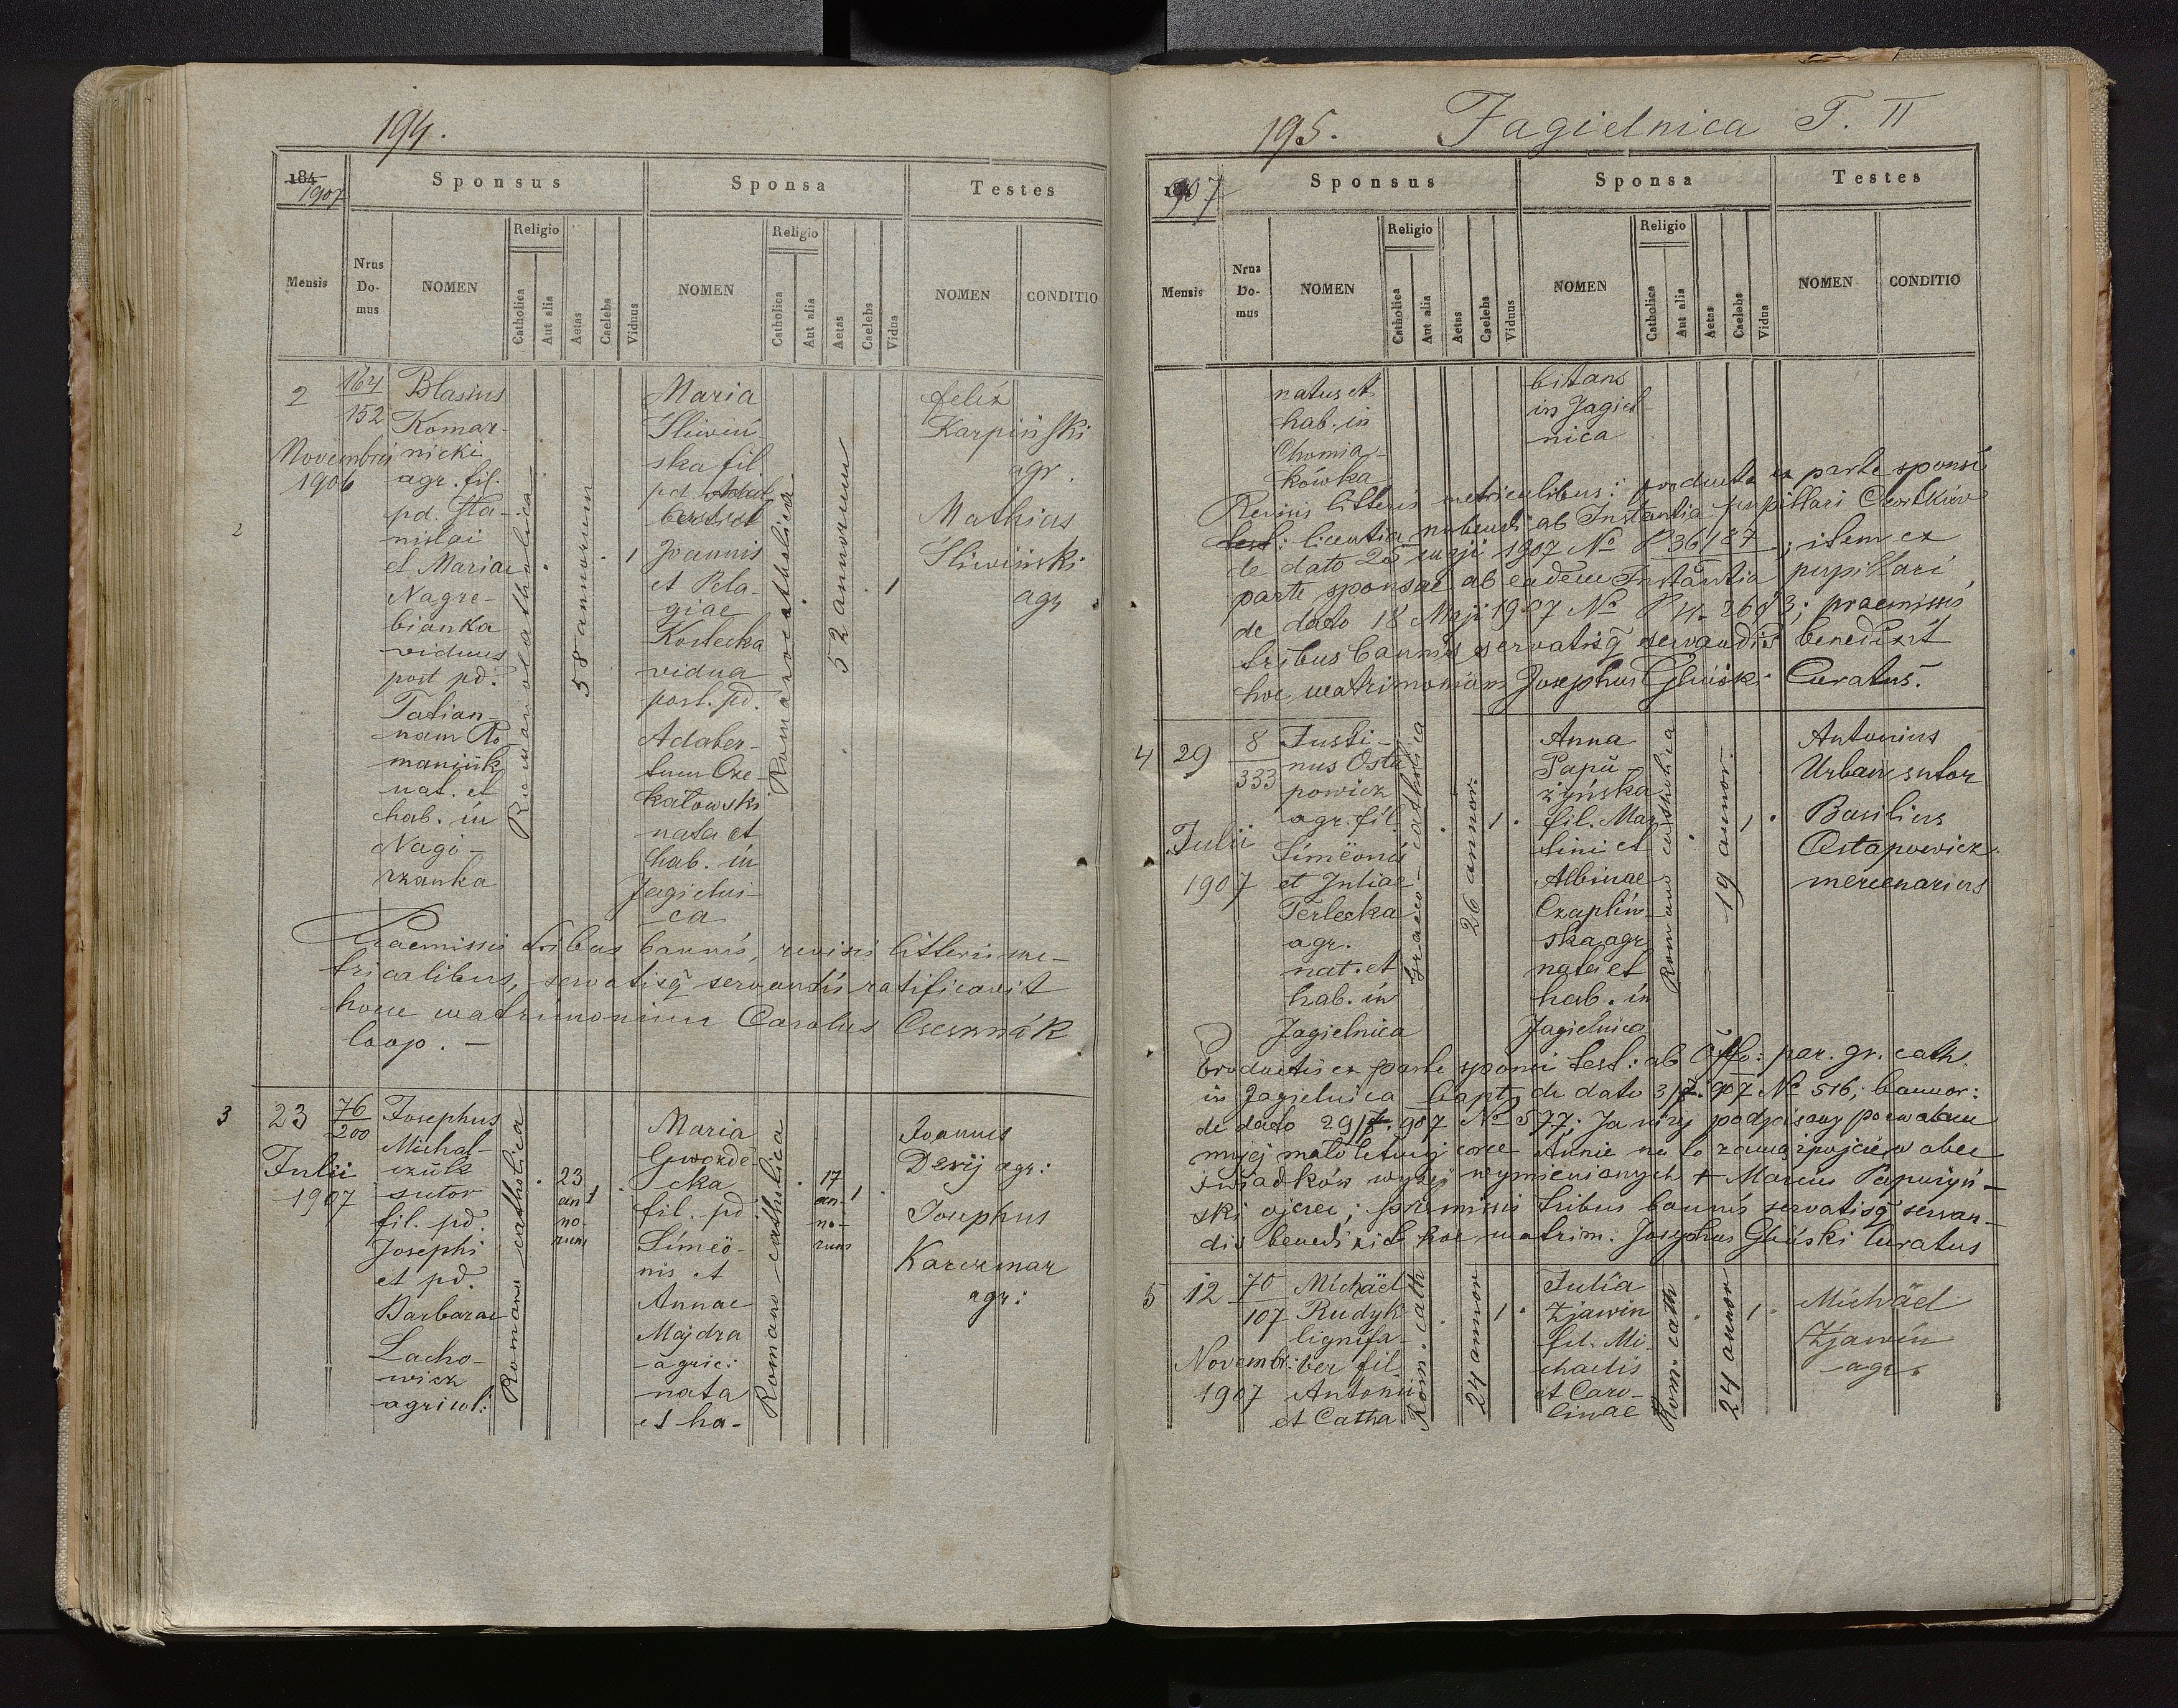 194.
184
1907
Sponsus
Sponsa
Testes
Mensis
Nrus Do-mus
NOMEN
Religio
Catholica
Aut alia
Aetas
Caelebs
Viduus
NOMEN
Religio
Catholica
Aut alia
Aetas
Caelebs
Vidua
NOMEN
CONDITIO
2
2
Novembris
1906
164
152
Blasius
Komar-
nicki
agr. fil.
pd. Sta-
nislai
et Mariae
Nagre-
bianka
viduus
post pd.
Tatian-
nam Ro
maniuk
nat. et
hab. in
Nagó-
rzanka
Romano catholica
58 annorum
1
Maria
Śliwiń-
ska fil.
pd.
Joannis
et Pela-
giae
Kostecka
vidua
post. pd.
Adalber-
tum Cze-
kałowski
nata et
hab. in
Jagielni-
ca
Romano catholica
52 annorum
1
Felix
Karpiński
agr.
Mathias
Śliwiński
agr
Praemissis tribus bannis, revisis litteris me-
tricalibus, servatisq servandis ratificavit
hocce matrimonium Carolus
coop. –
3
23
Julii
1907
76
200
Josephus
Michal-
czuk
sutor
fil. pd.
Josephi
et pd.
Barbarae
Lacho-
wicz
agricol:
Romano catholica
23
an
no-
rum
1
Maria
Gwozde-
cka
fil. pd
Simeo-
nis et
Annae
Majdra
agric:
nata
et ha-
Romano catholica
17
an-
no-
rum
1
Joannes
Deryj agr:
Josephus
Karczmar
agr:
195.
Jagielnica T. II
184
907
Sponsus
Sponsa
Testes
Mensis
Nrus Do-mus
NOMEN
Religio
Catholica
Aut alia
Aetas
Caelebs
Viduus
NOMEN
Religio
Catholica
Aut alia
Aetas
Caelebs
Vidua
NOMEN
CONDITIO
natus et
hab. in
Chomia-
kówka
bitans
in Jagiel-
nica
Revisis litteris metricalibus: producta ex parte sponsi
test: licentia nubendi ab Instantia pupillari Czortków
de dato 25 1907 No P 36/87; item ex
parte sponsae ab eadem Instantia pupillari
de dato 18 Maji 1907 No P 260/3; praemissis
tribus bannis servatisq servandis benedixit
hoc matrimonium Josephus Gliński Curatus.
4
29
Julii
1907
8
333
Justi-
nus Osta
powicz
agr. fil.
Simeonis
et Juliae
Terlecka
agr.
nat. et
hab. in
Jagielnica
Graeco-catholica
26 annor.
1
Anna
Papu-
żyńska
fil. Mar
tini et
Albinae
Czapliń-
ska agr
nata et
hab. in
Jagielnica
Romano catholica
19 annor.
1
Antonius
Urban sutor
Basilius
Ostapowicz
mercenarius
Productis ex parte sponsi test: ab Offo: par. gr. cath.
in Jagielnica bapt; de dato 3/7. 907 No 516; bannor:
de dato 29/7. 907 No 577; Ja niżej podpisany pozwalam
mojej małoletniej córce Annie na to zamążpójście, w obec
świadków wyżej wymienionych + Marcin Papużyń-
ski ojciec; premissis tribus bannis servatisq servan-
dis benedixit hoc matrim. Josephus Gliński Curatus
5
12
Novembr:
1907
70
107
Michael
Rudyk
lignifa-
ber fil
Antonii
et Catha
Rom. cath
24 annor
1
Julia
Zjawin
fil. Mi-
chaelis
et Caro-
linae
Rom. cath
24 annor
1
Michael
Zjawin
agr.